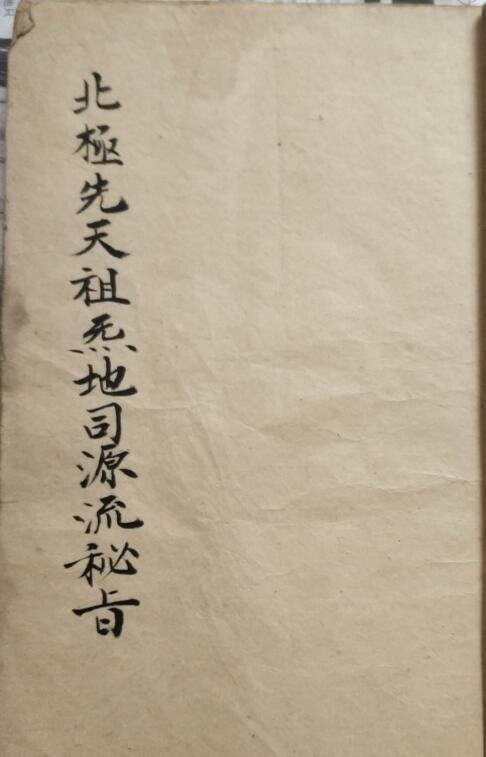 北極先天祖炁地司源流秘㫖